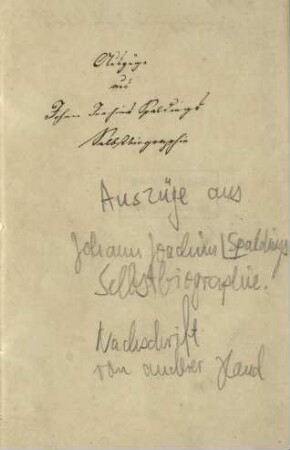 Auszüge
aus
Johan Joachims Spaldings
Selbstbiographie
Auszüge aus
Johann Joachim Spaldings
Selbstbiographie.
Nachschrift
von anderer Hand